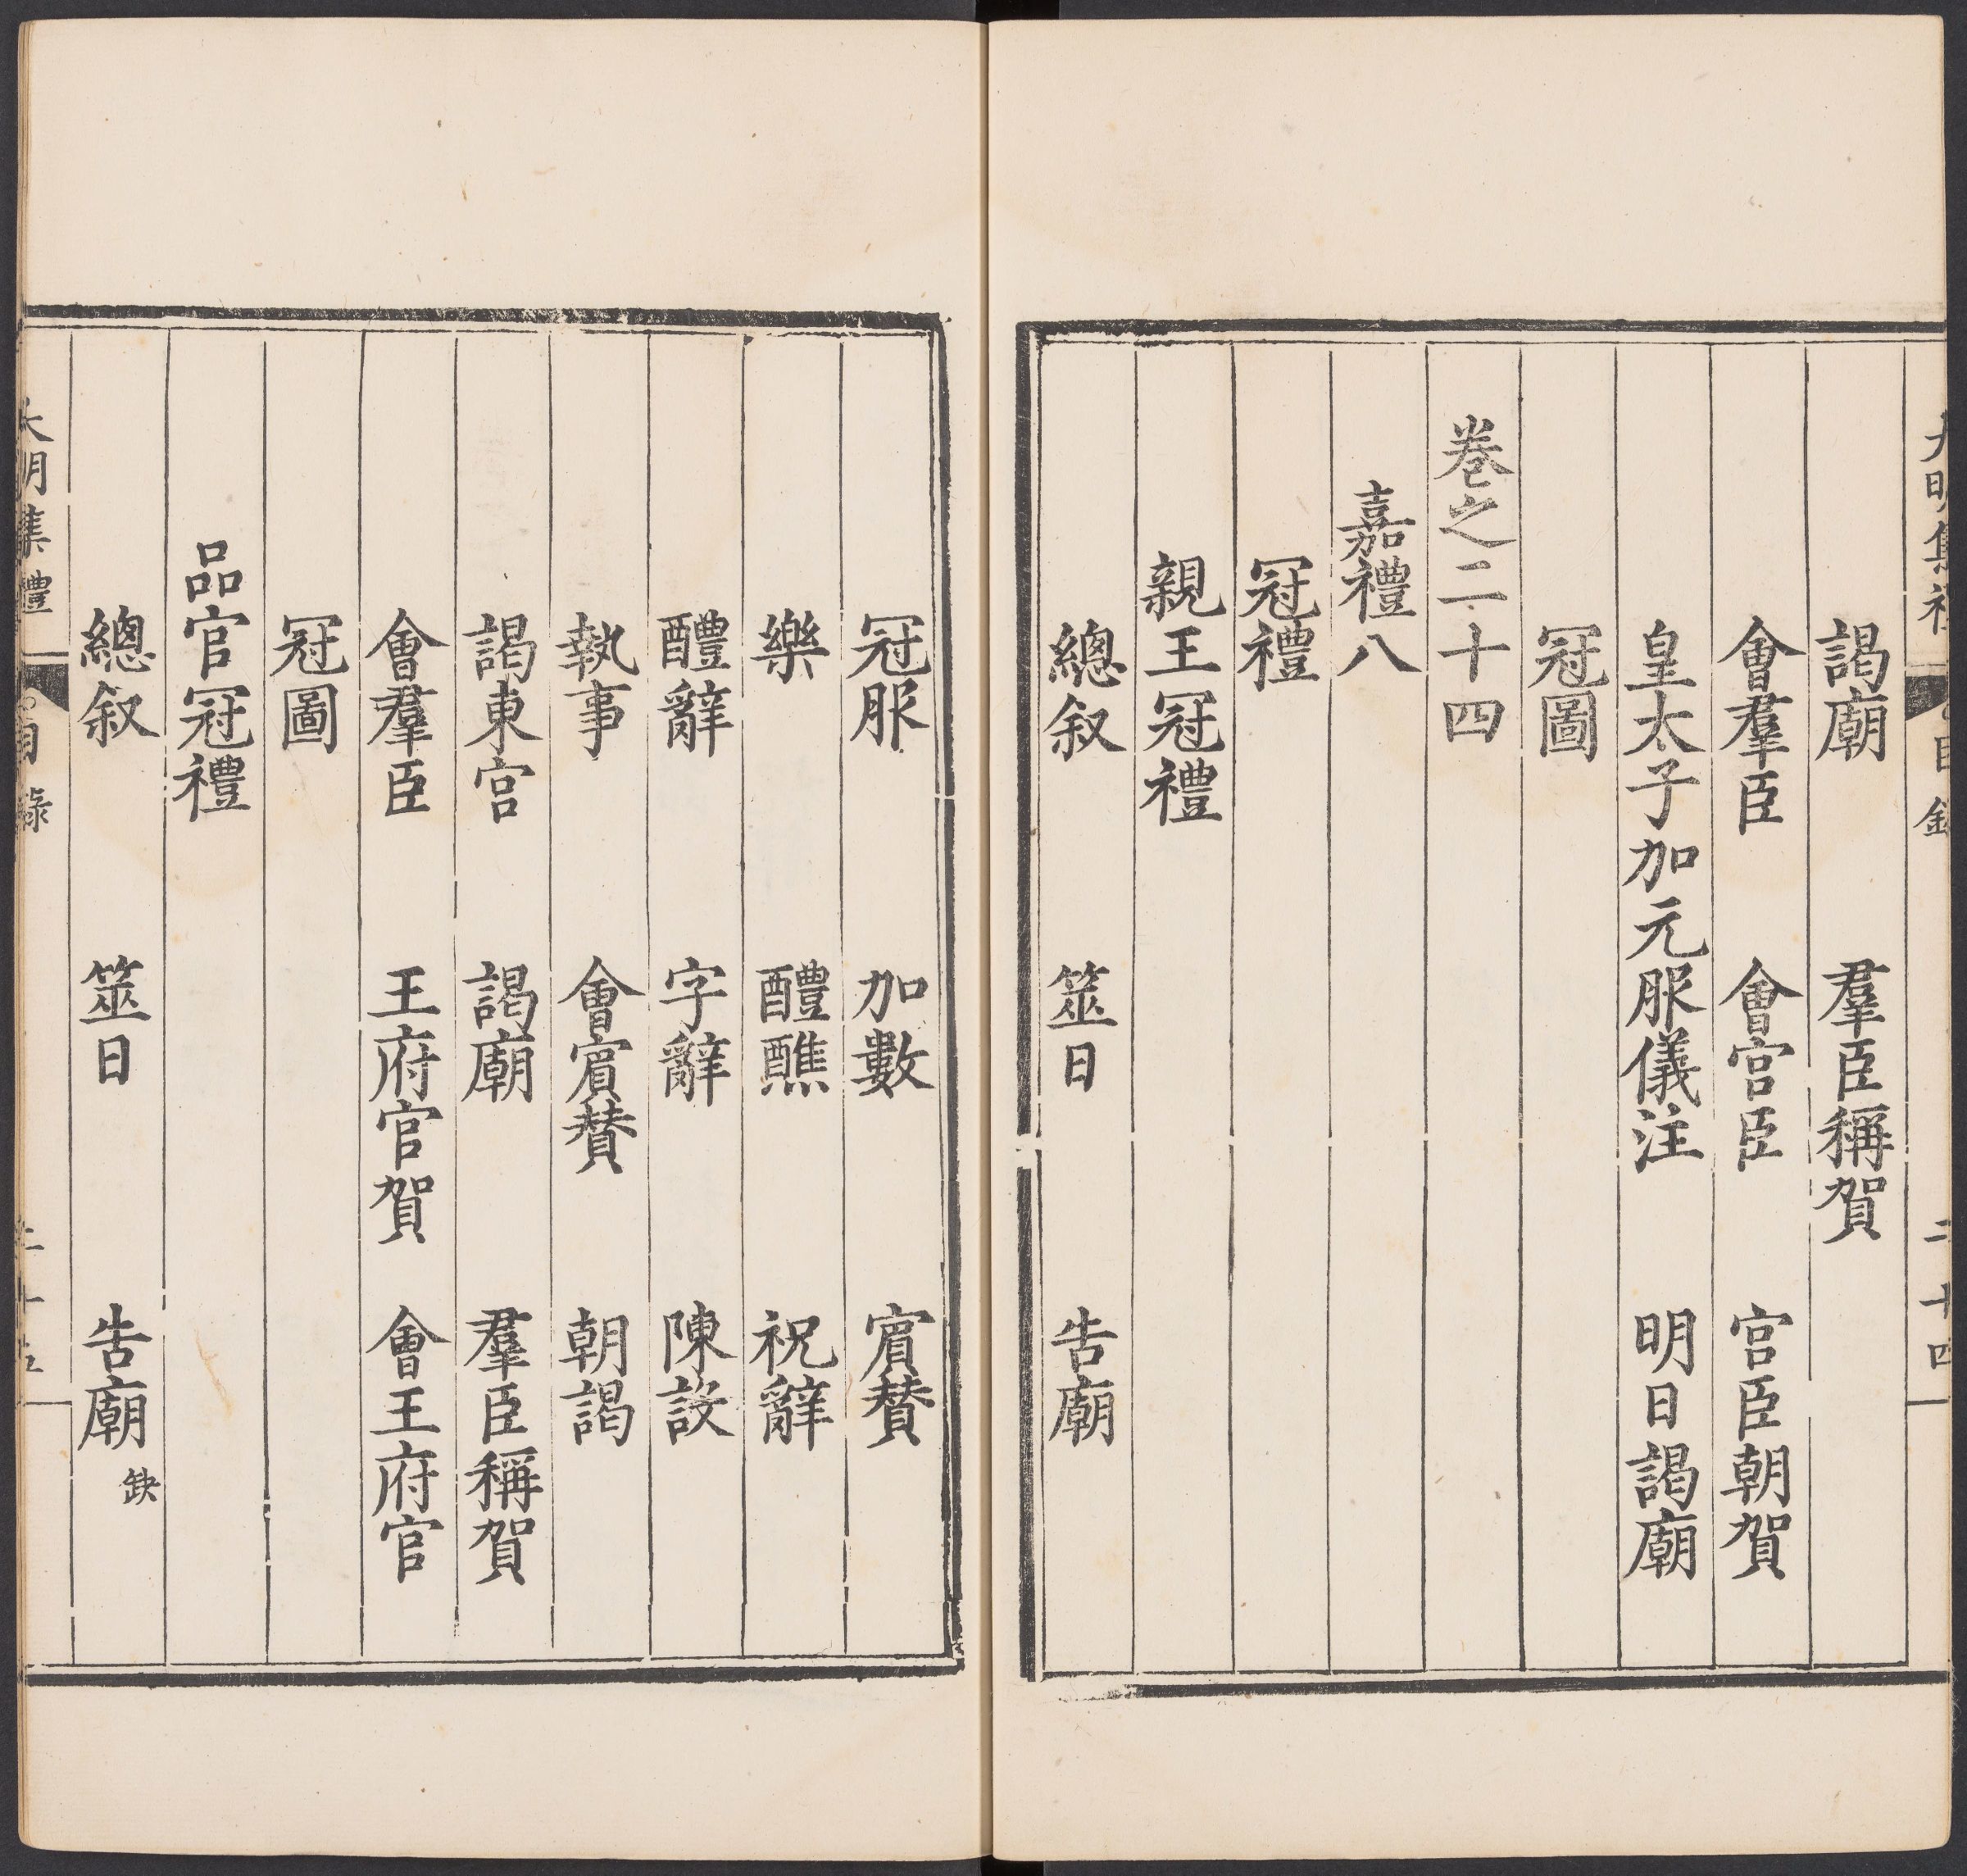 大明集禮 目錄 二十四
謁廟 羣臣稱賀
會羣臣 會宮臣 宮臣朝賀
皇太子加元服儀注 明日謁廟
冠圖
卷之二十四
嘉禮八
冠禮
親王冠禮
總叙 筮日 告廟
冠服 加數 賓賛
樂 醴醮 祝辭
醴辭 字辭 陳設
執事 會賓賛 朝謁
謁東宮 謁廟 羣臣稱賀
會羣臣 王府官賀 會王府官
冠圖
品官冠禮
總叙 筮日 告廟缺
大明集禮 目錄 二十五